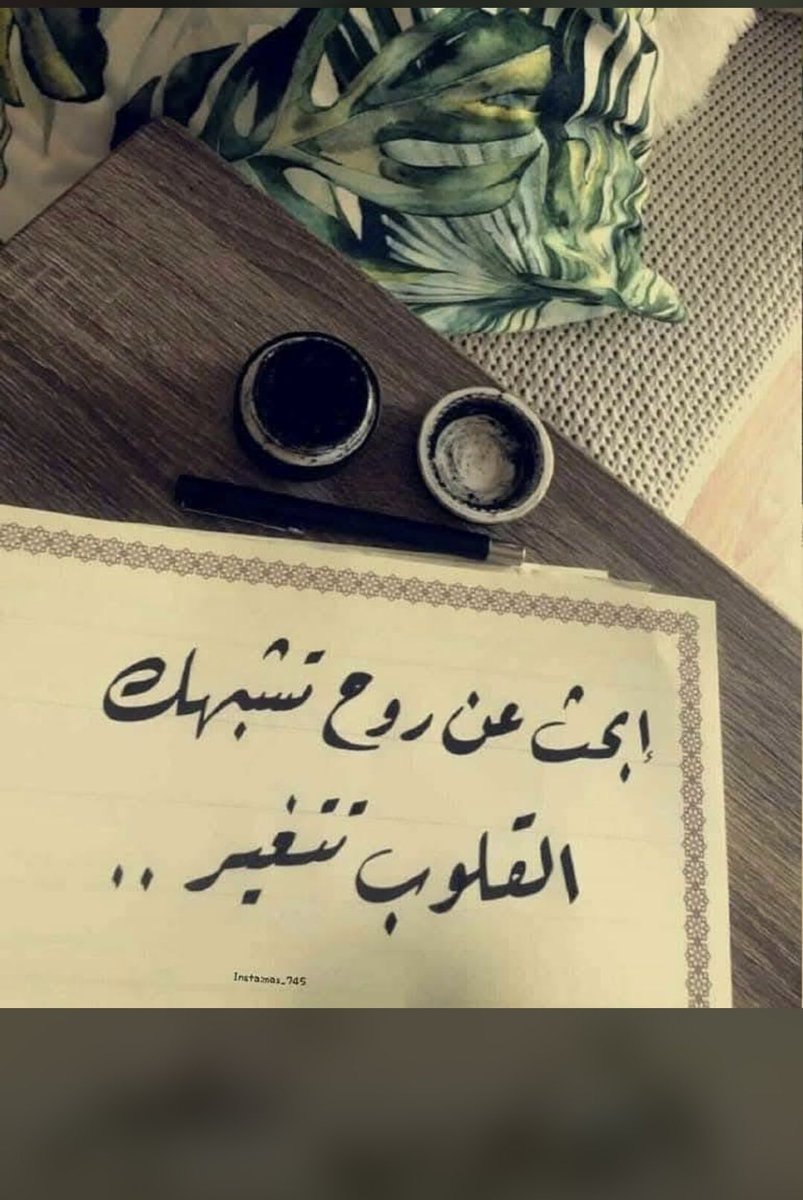 إبحث عن روح تشبهك
القلوب تتغير ..
Insta:mas_745